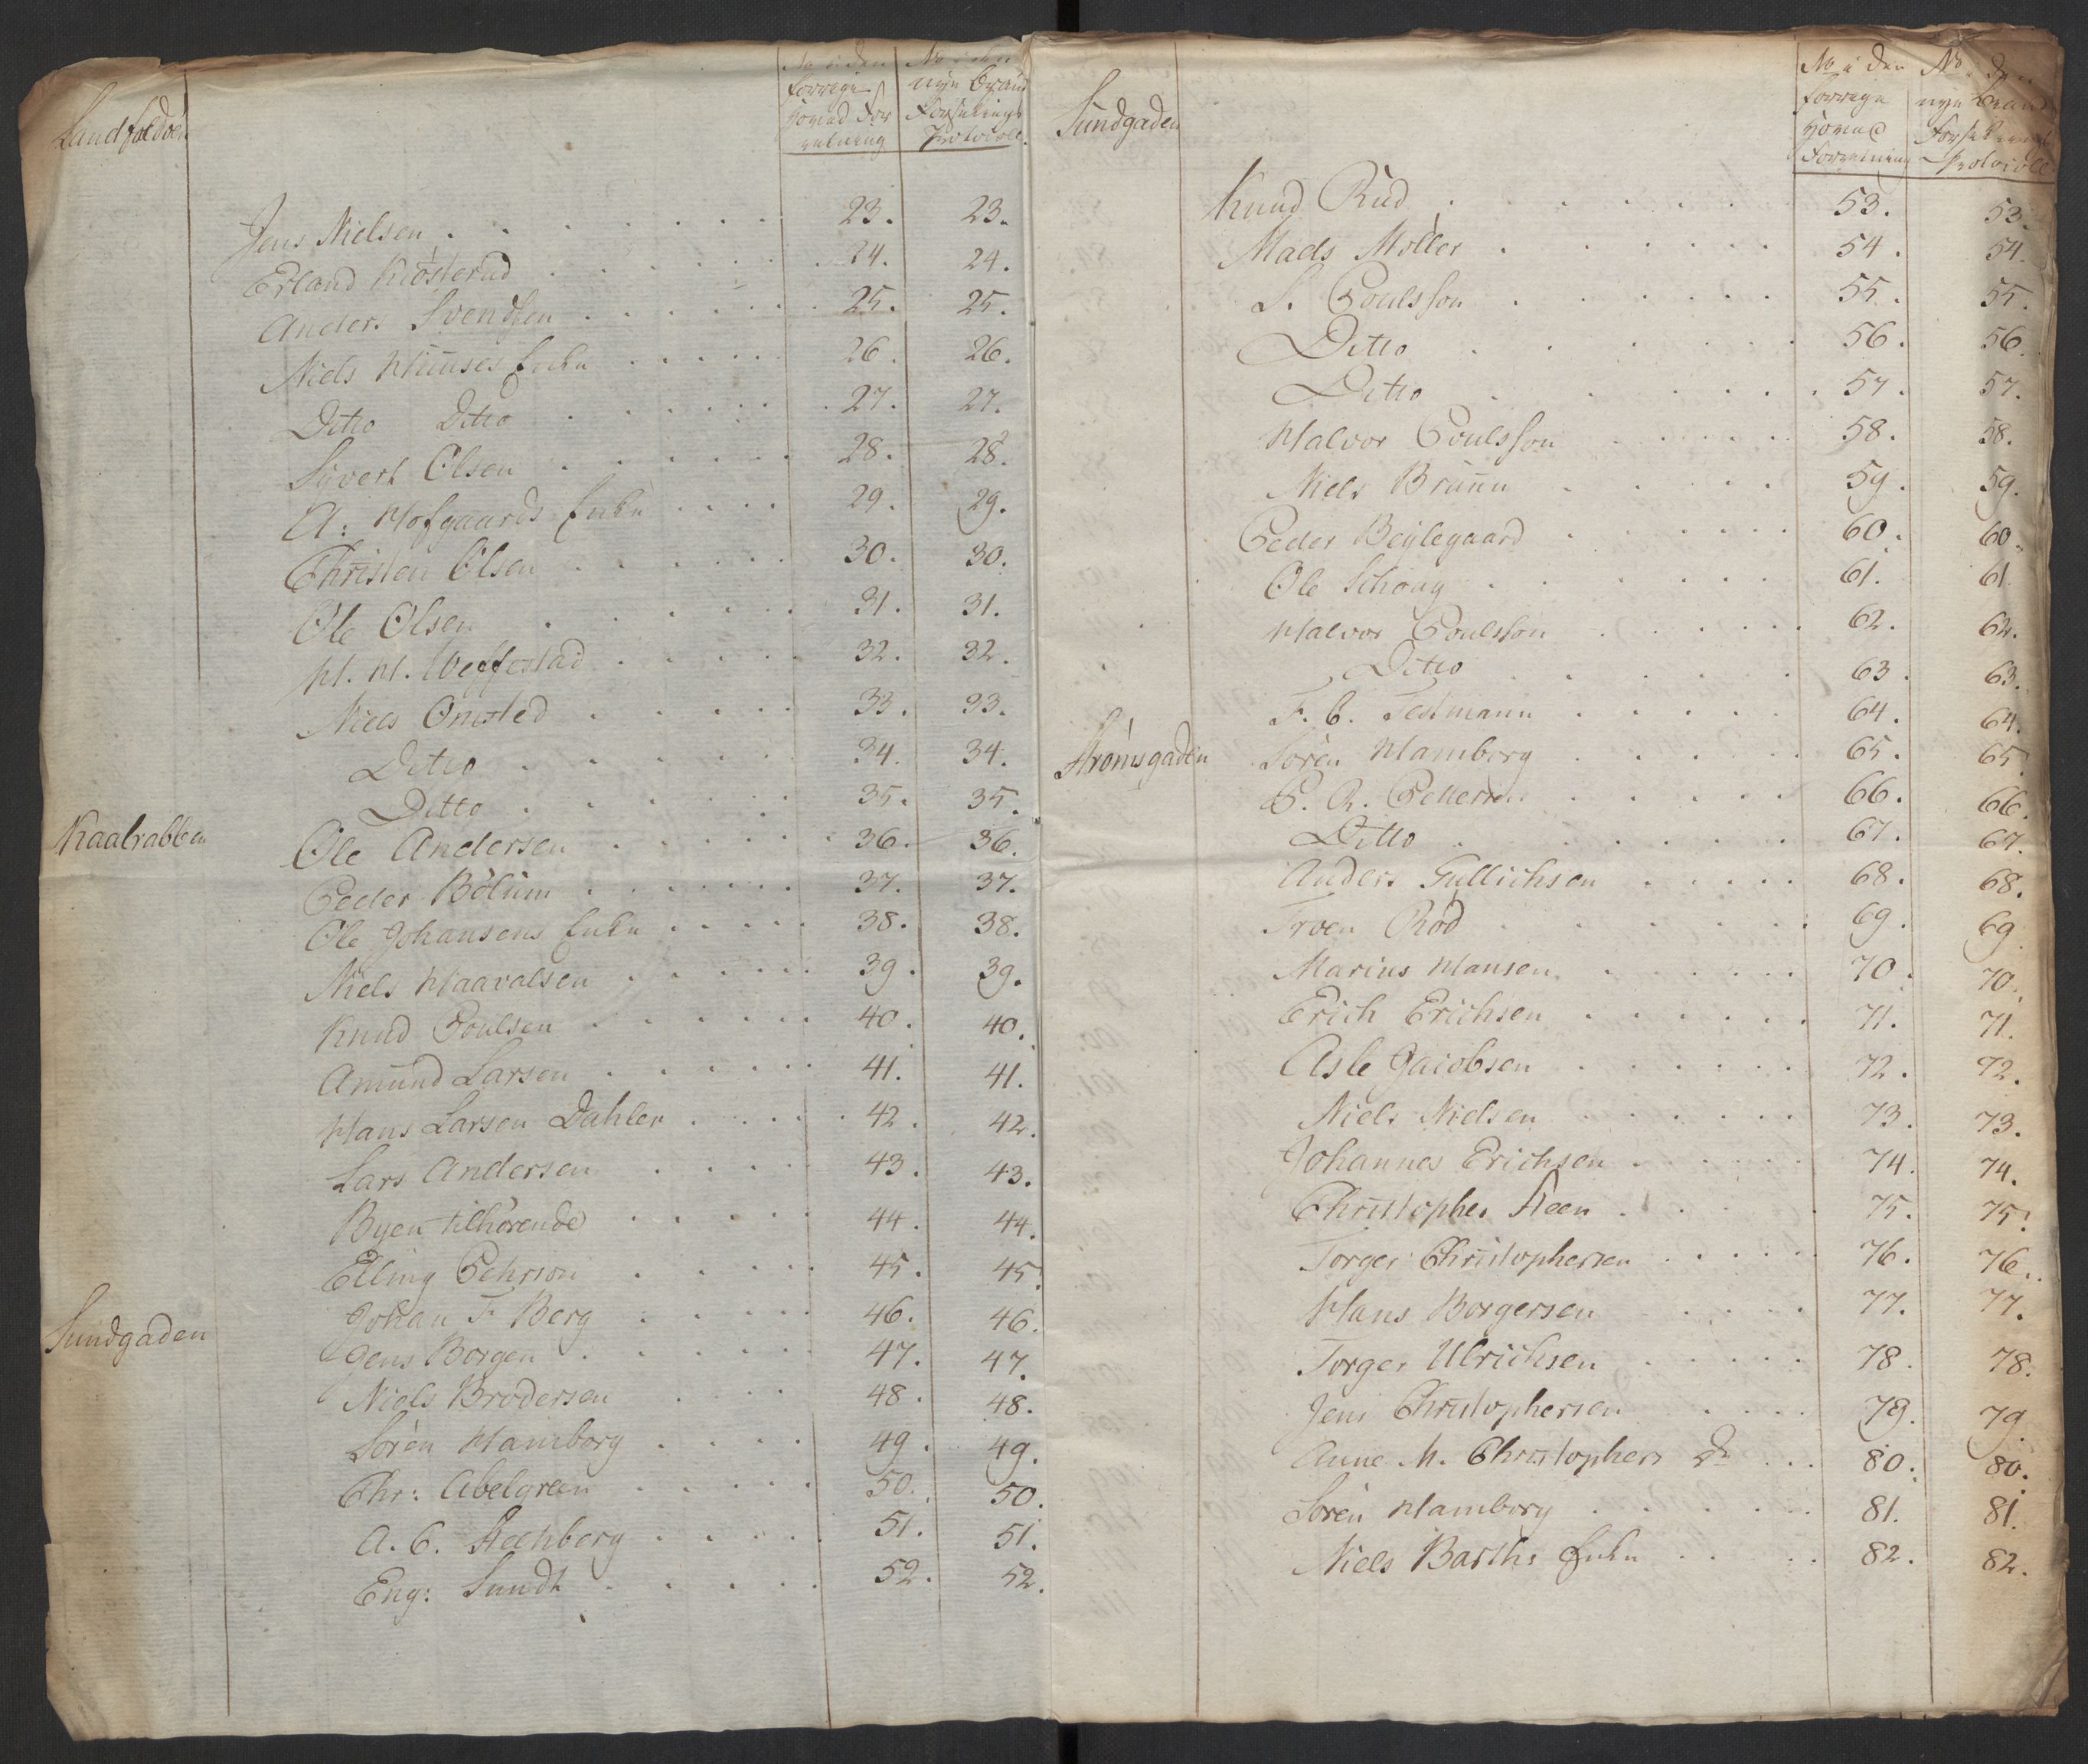 Landfaldöen
No i den forrige Hoved For retning
No i den nye Brand Forsikrings Protocoll.
Jens Nielsen . . . . . . . 23. 23.
Erland Kiösterud . . . . . . 24. 24.
Anders Svendsen . . . . . . 25. 25.
Niels Muuses Enke . . . . . 26. 26.
Ditto Ditto . . . . . . 27. 27.
Sÿvert Olsen . . . . . . 28. 28.
A: Hofgaards Enke . . . . 29. 29.
Christen Olsen . . . . . . 30. 30.
Ole Olsen . . . . . . 31. 31.
H. H. Veffestad . . . . . 32. 32.
Niels Omsted . . . . . 33. 33.
Ditto . . . . . 34. 34.
Ditto . . . . . 35. 35.
Kaalrabben
Ole Andersen . . . . . 36. 36.
Peder Bölum . . . . . . 37. 37.
Ole Johansens Enke . . . . . 38. 38.
Niels Haavalsen . . . . . 39. 39.
Knud Poulsen . . . . . . 40. 40.
Amund Larsen . . . . . . 41. 41.
Hans Larsen Dahler . . . . 42. 42.
Lars Andersen . . . . . 43. 43.
Byen tilhörende . . . . . 44. 44.
Elling Pehrson . . . . . 45. 45.
Sundgaden
Johan F Berg . . . . . 46. 46.
Jens Borgen . . . . . 47. 47.
Niels Brodersen . . . . 48. 48.
Sören Hamborg . . . . 49. 49.
Chr: Abelgreen . . . . . 50. 50.
A. C. Steenberg . . . . 51. 51.
Eng: Sundt . . . . . 52. 52.
Sundgaden
No i den forrige Hoved Forretning
No i den nye Brand Forsikrings Protocoll
Knud Rud . . . . . . 53. 53.
Mads Möller . . . . . . 54. 54.
S. Poulsson . . . . . 55. 55.
Ditto . . . . . . 56. 56.
Ditto . . . . . . 57. 57.
Halvor Poulsson . . . . . 58. 58.
Niels Bruun . . . . . 59. 59.
Peder Beÿlegaard . . . . . 60. 60.
Ole Schoug . . . . . . 61. 61.
Halvor Poulsson . . . . . 62. 62.
Ditto . . . . . 63. 63.
F. C. Testmann . . . . . 64. 64.
Strömsgaden
Sören Hamborg . . . . . 65. 65.
P. R. Pettersen . . . . . 66. 66.
Ditto . . . . . . 67. 67.
Anders Gullichsen . . . . . 68. 68.
Troen Röd . . . . . . 69. 69.
Marius Hansen . . . . . . 70. 70.
Erich Erichsen . . . . . . 71. 71.
Asle Jacobsen . . . . . . 72. 72.
Niels Nielsen . . . . . . 73. 73.
Johannes Erichsen . . . . . 74. 74.
Christopher Steen . . . . . 75. 75.
Torger Christophersen . . . . . 76. 76.
Hans Borgersen . . . . . 77. 77.
Torger Ulrichsen . . . . . 78. 78.
Jens Christophersen . . . . 79. 79.
Anne M. Christophers Dr . . . 80. 80.
Sören Hamborg . . . . . . 81. 81.
Niels Barths Enke . . . . 82. 82.